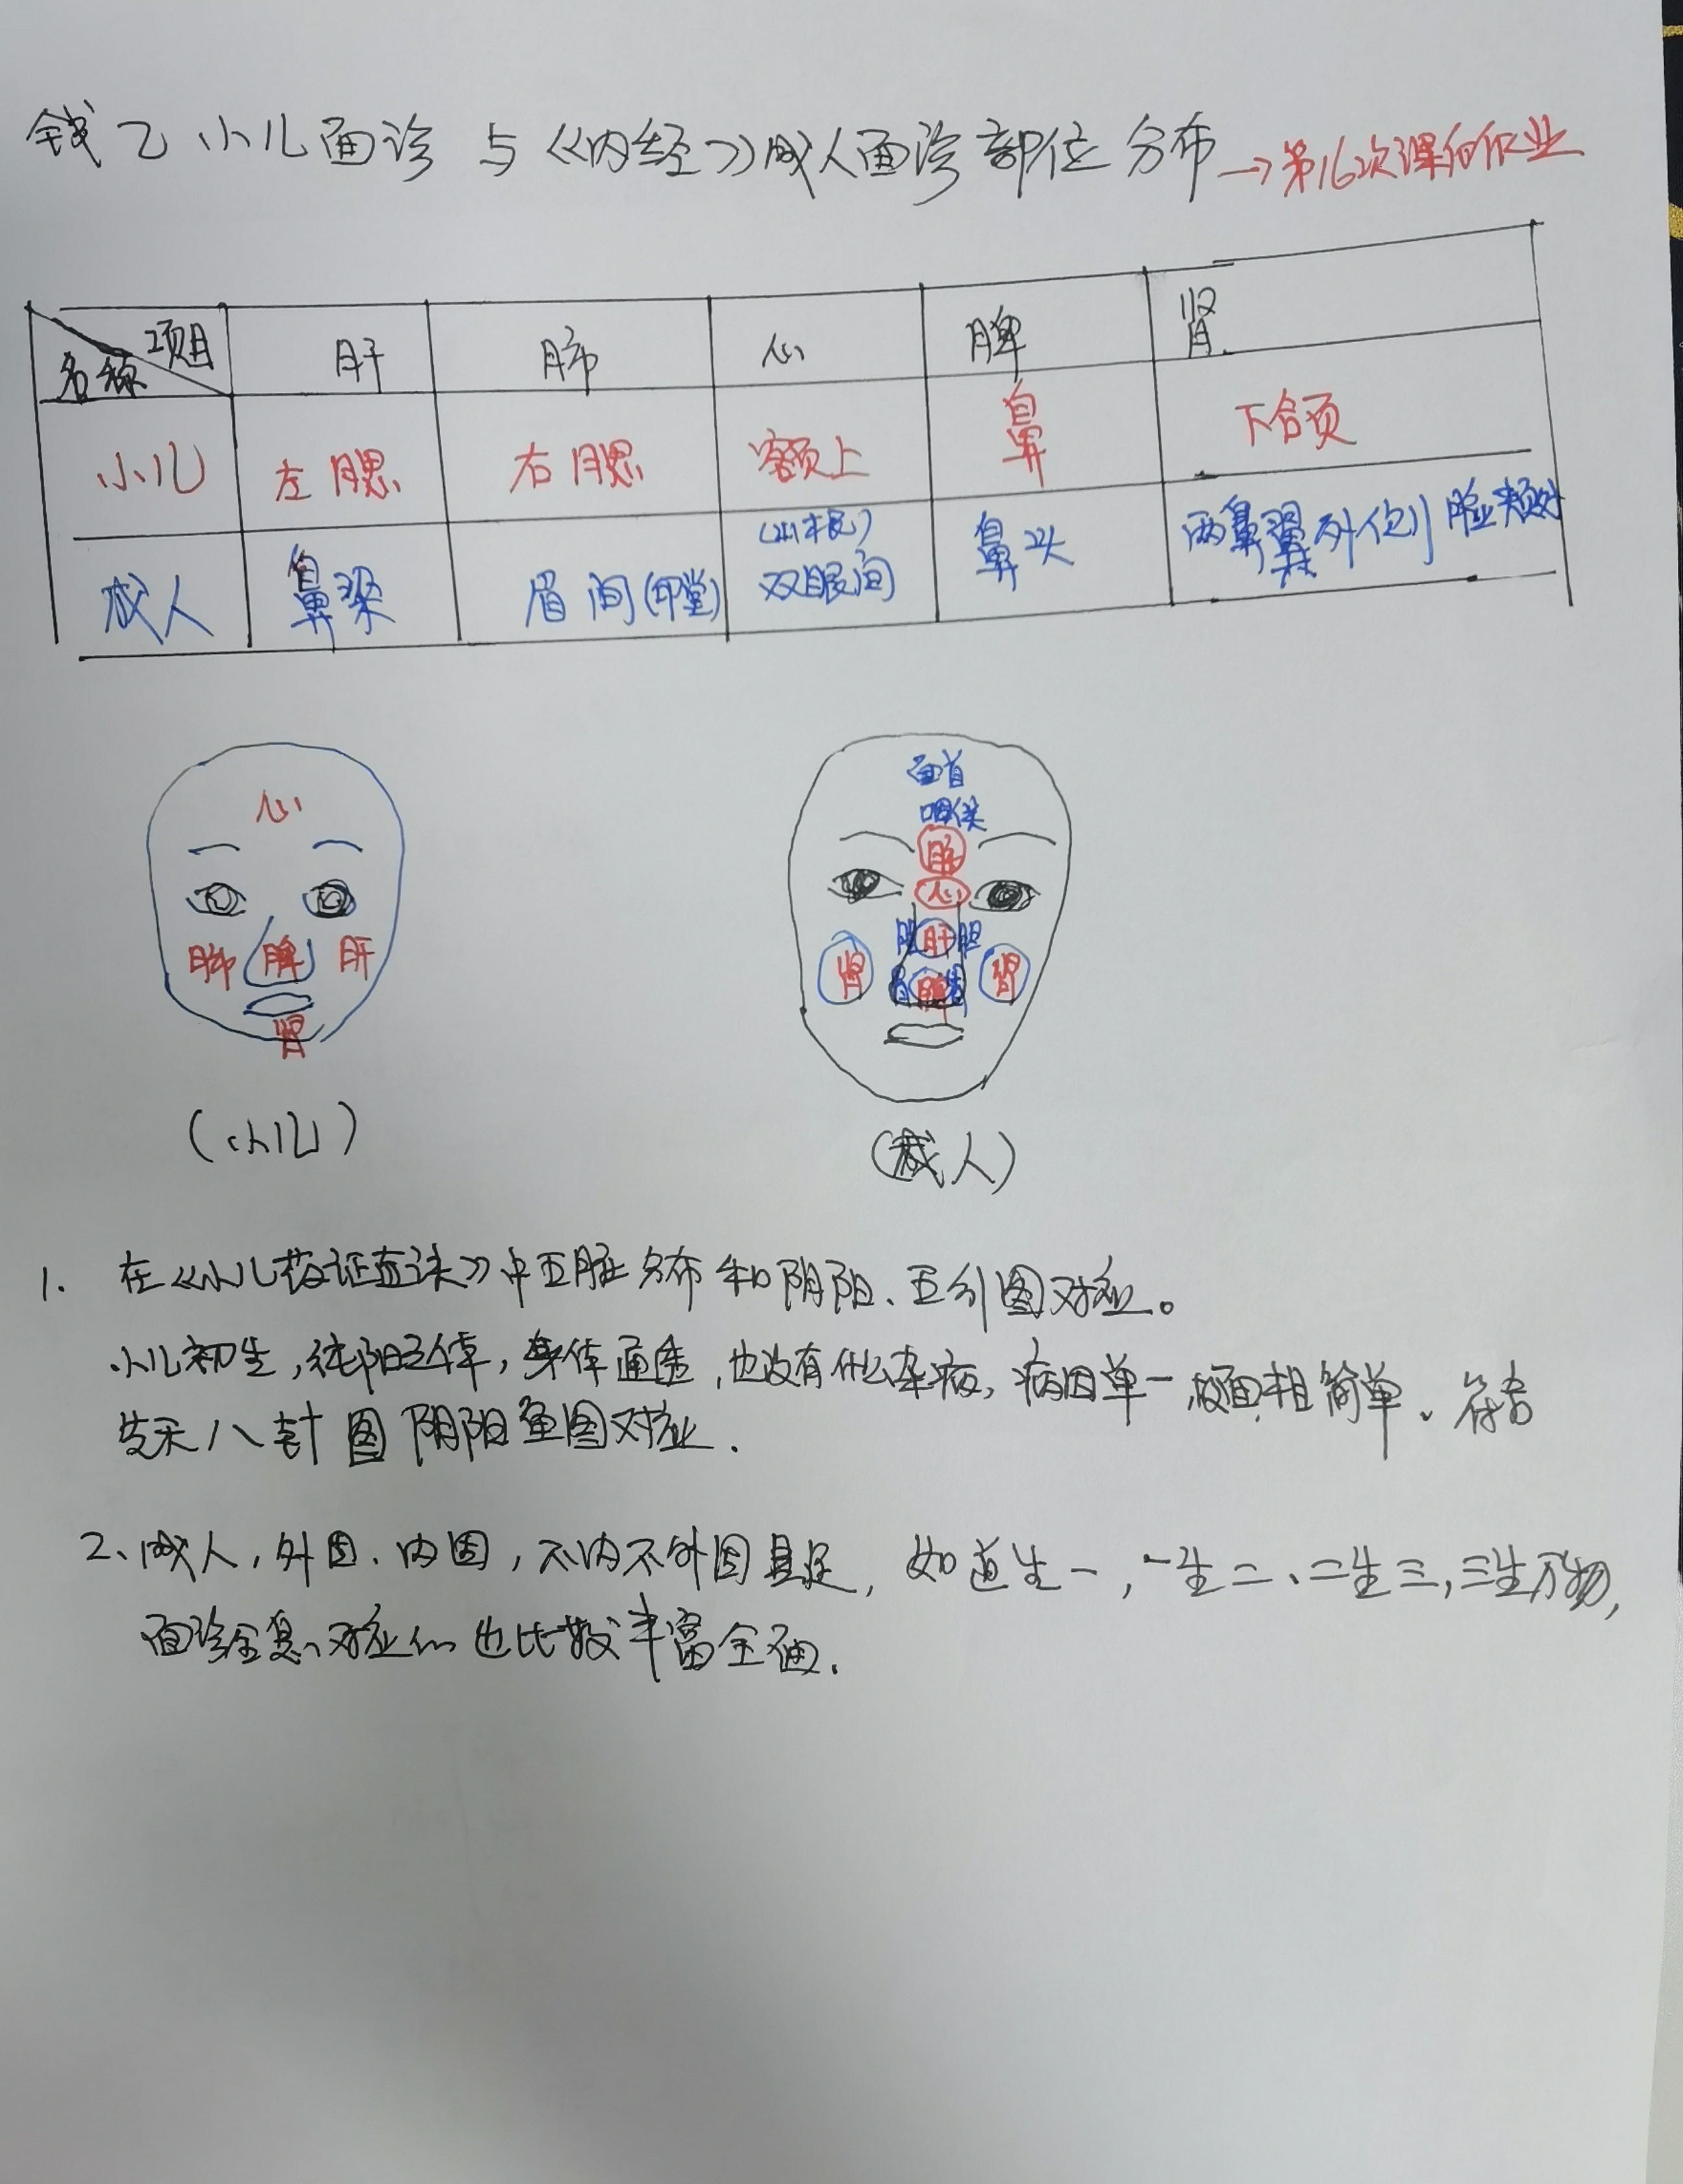 钱乙小儿面诊与《内经》成人面诊部位分布→第16次课的作业
项目 肝 肺 心 脾 肾
名称
小儿 左腮 右腮 额上 鼻 下颌
成人 鼻梁 眉间(印堂) (山根)双眼间 鼻头 两鼻翼外侧脸颊处
心
肺 脾 肝
肾
(小儿)
面首
咽喉
肺
心
胆 肝 胆
肾 胃 脾 胃 肾
(成人)
1. 在《小儿药证直诀》中五脏分布和阴阳、五行图对应。
小儿初生,纯阳之体,身体通透,也没有什么杂病,病因单一,故面相简单。符合
先天八卦图阴阳鱼图对应.
2、成人,外因、内因,不内不外因具足,如道生一,一生二、二生三,三生万物,
面诊全息对应 也比较丰富全面.